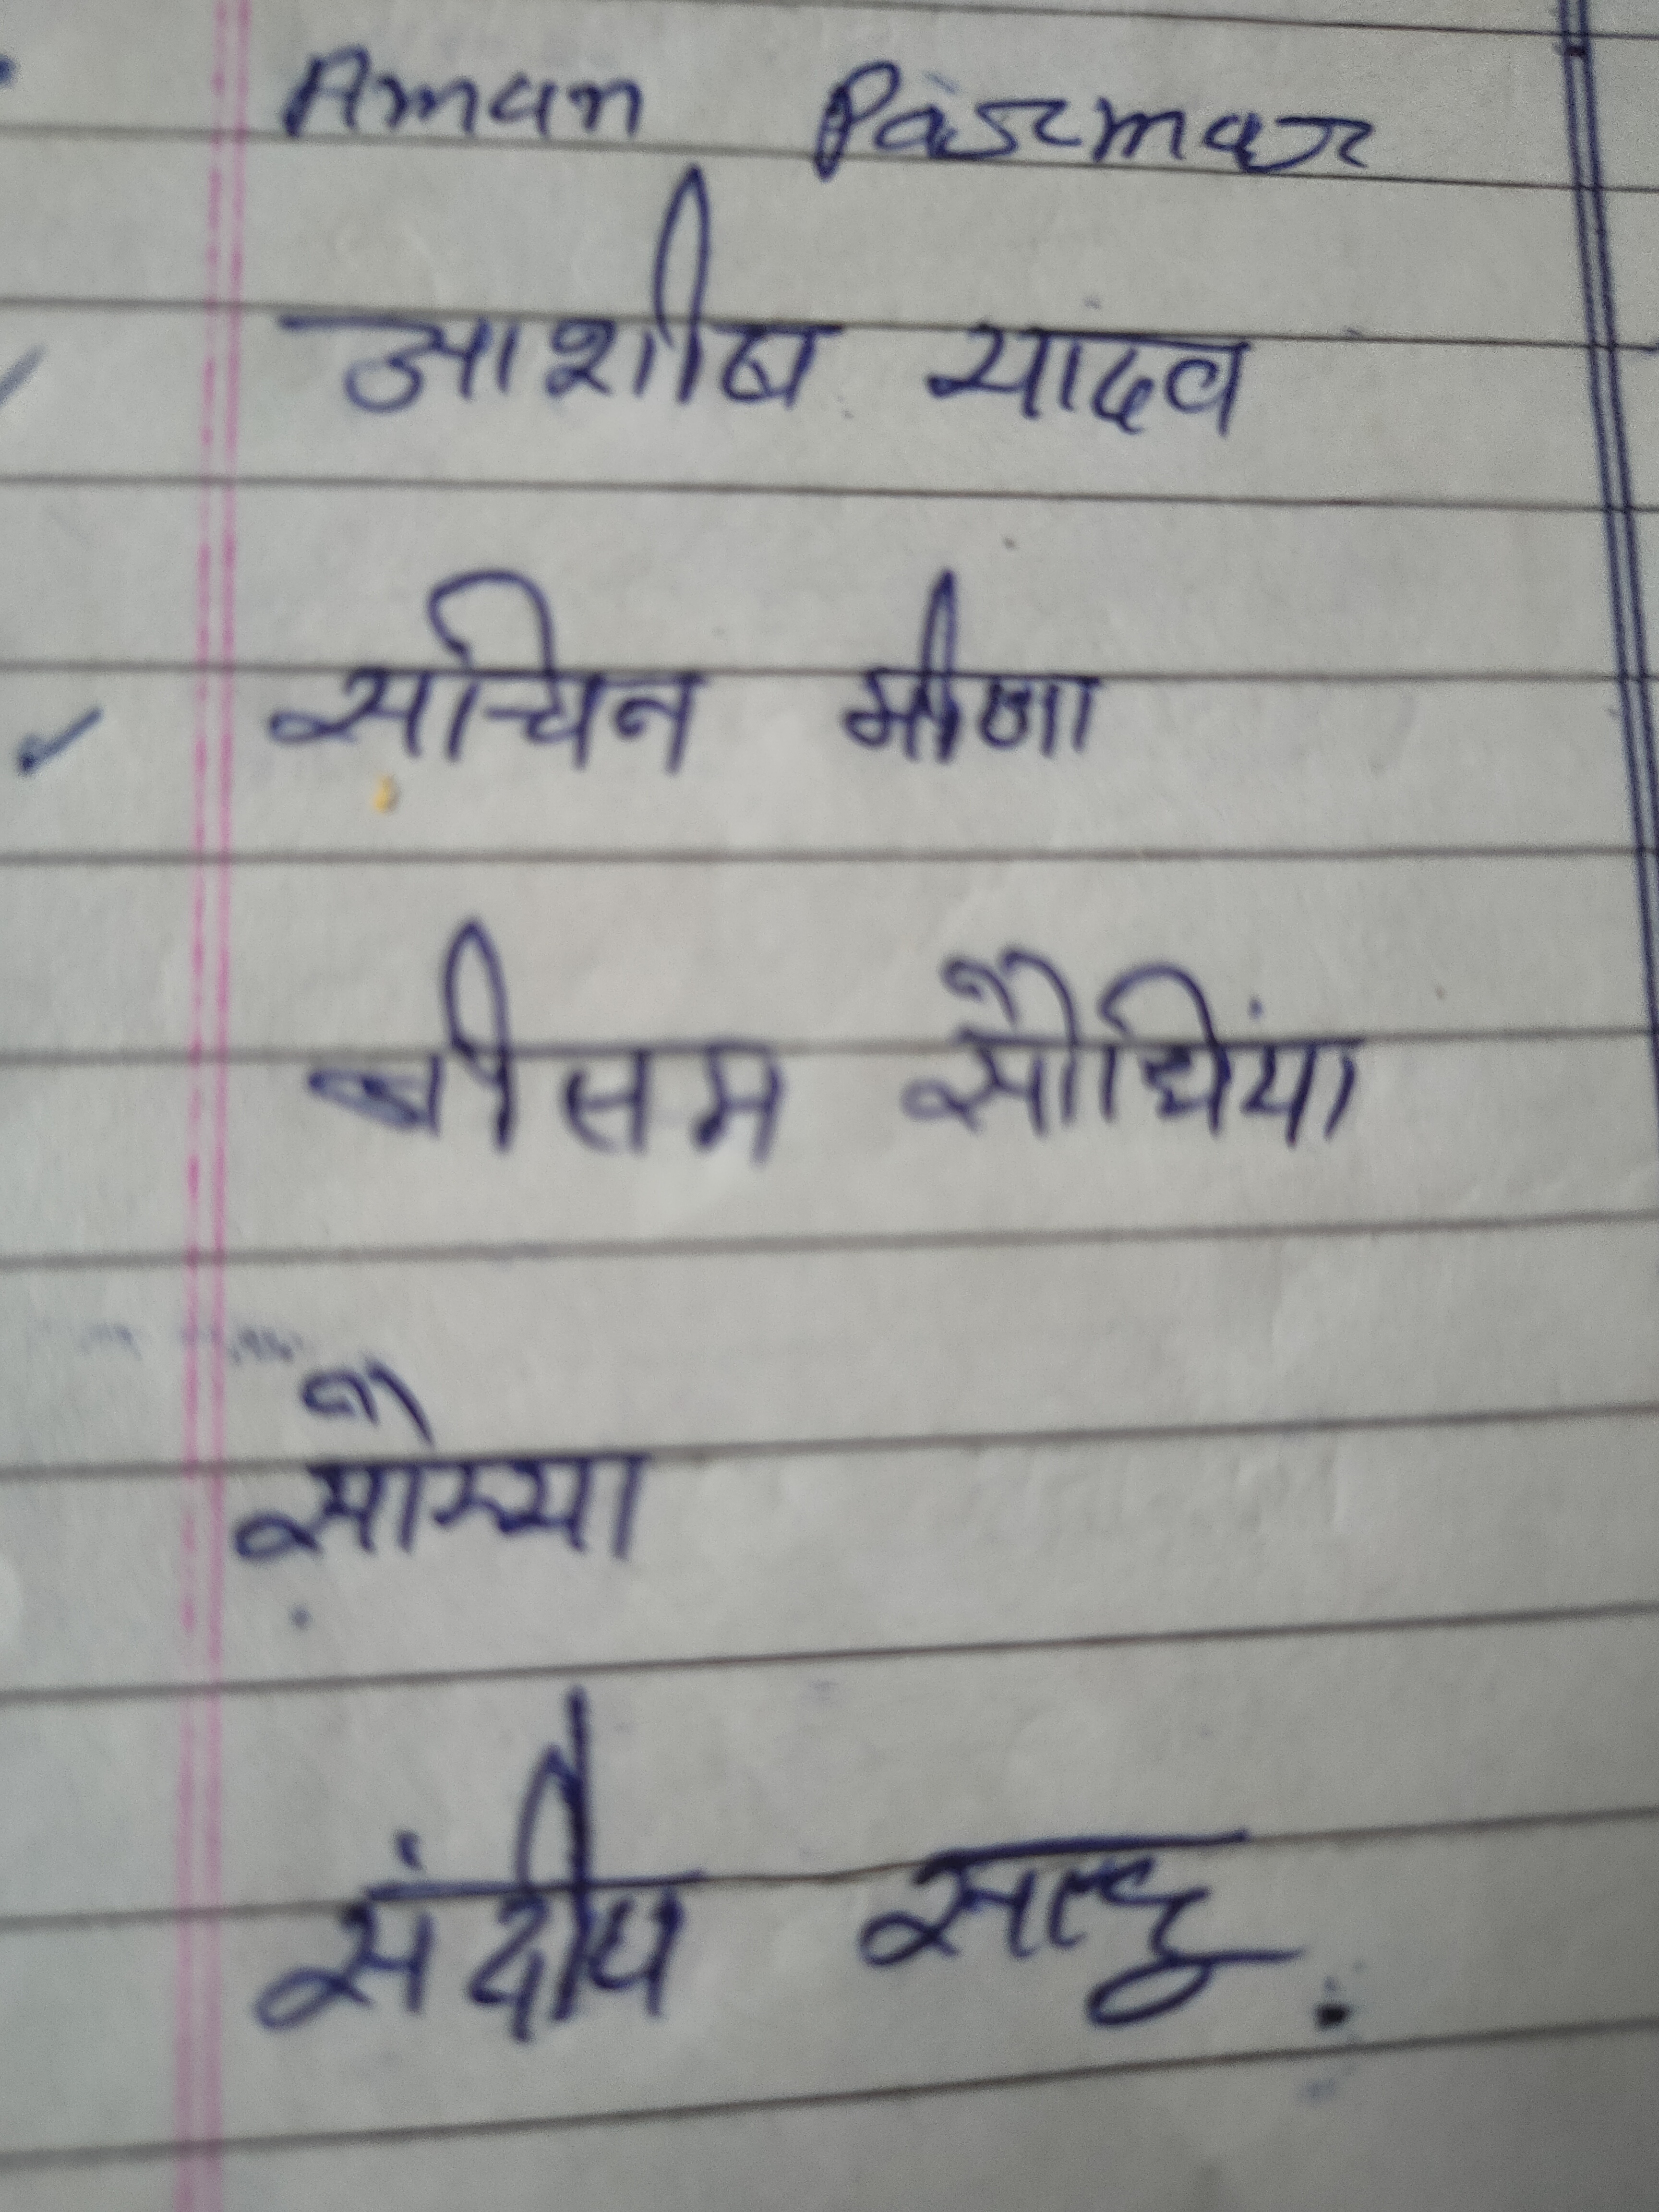 Aman Parmar
आशीष यादव
सचिन मीणा
सौंधिया
सौम्या
संदीप साहू